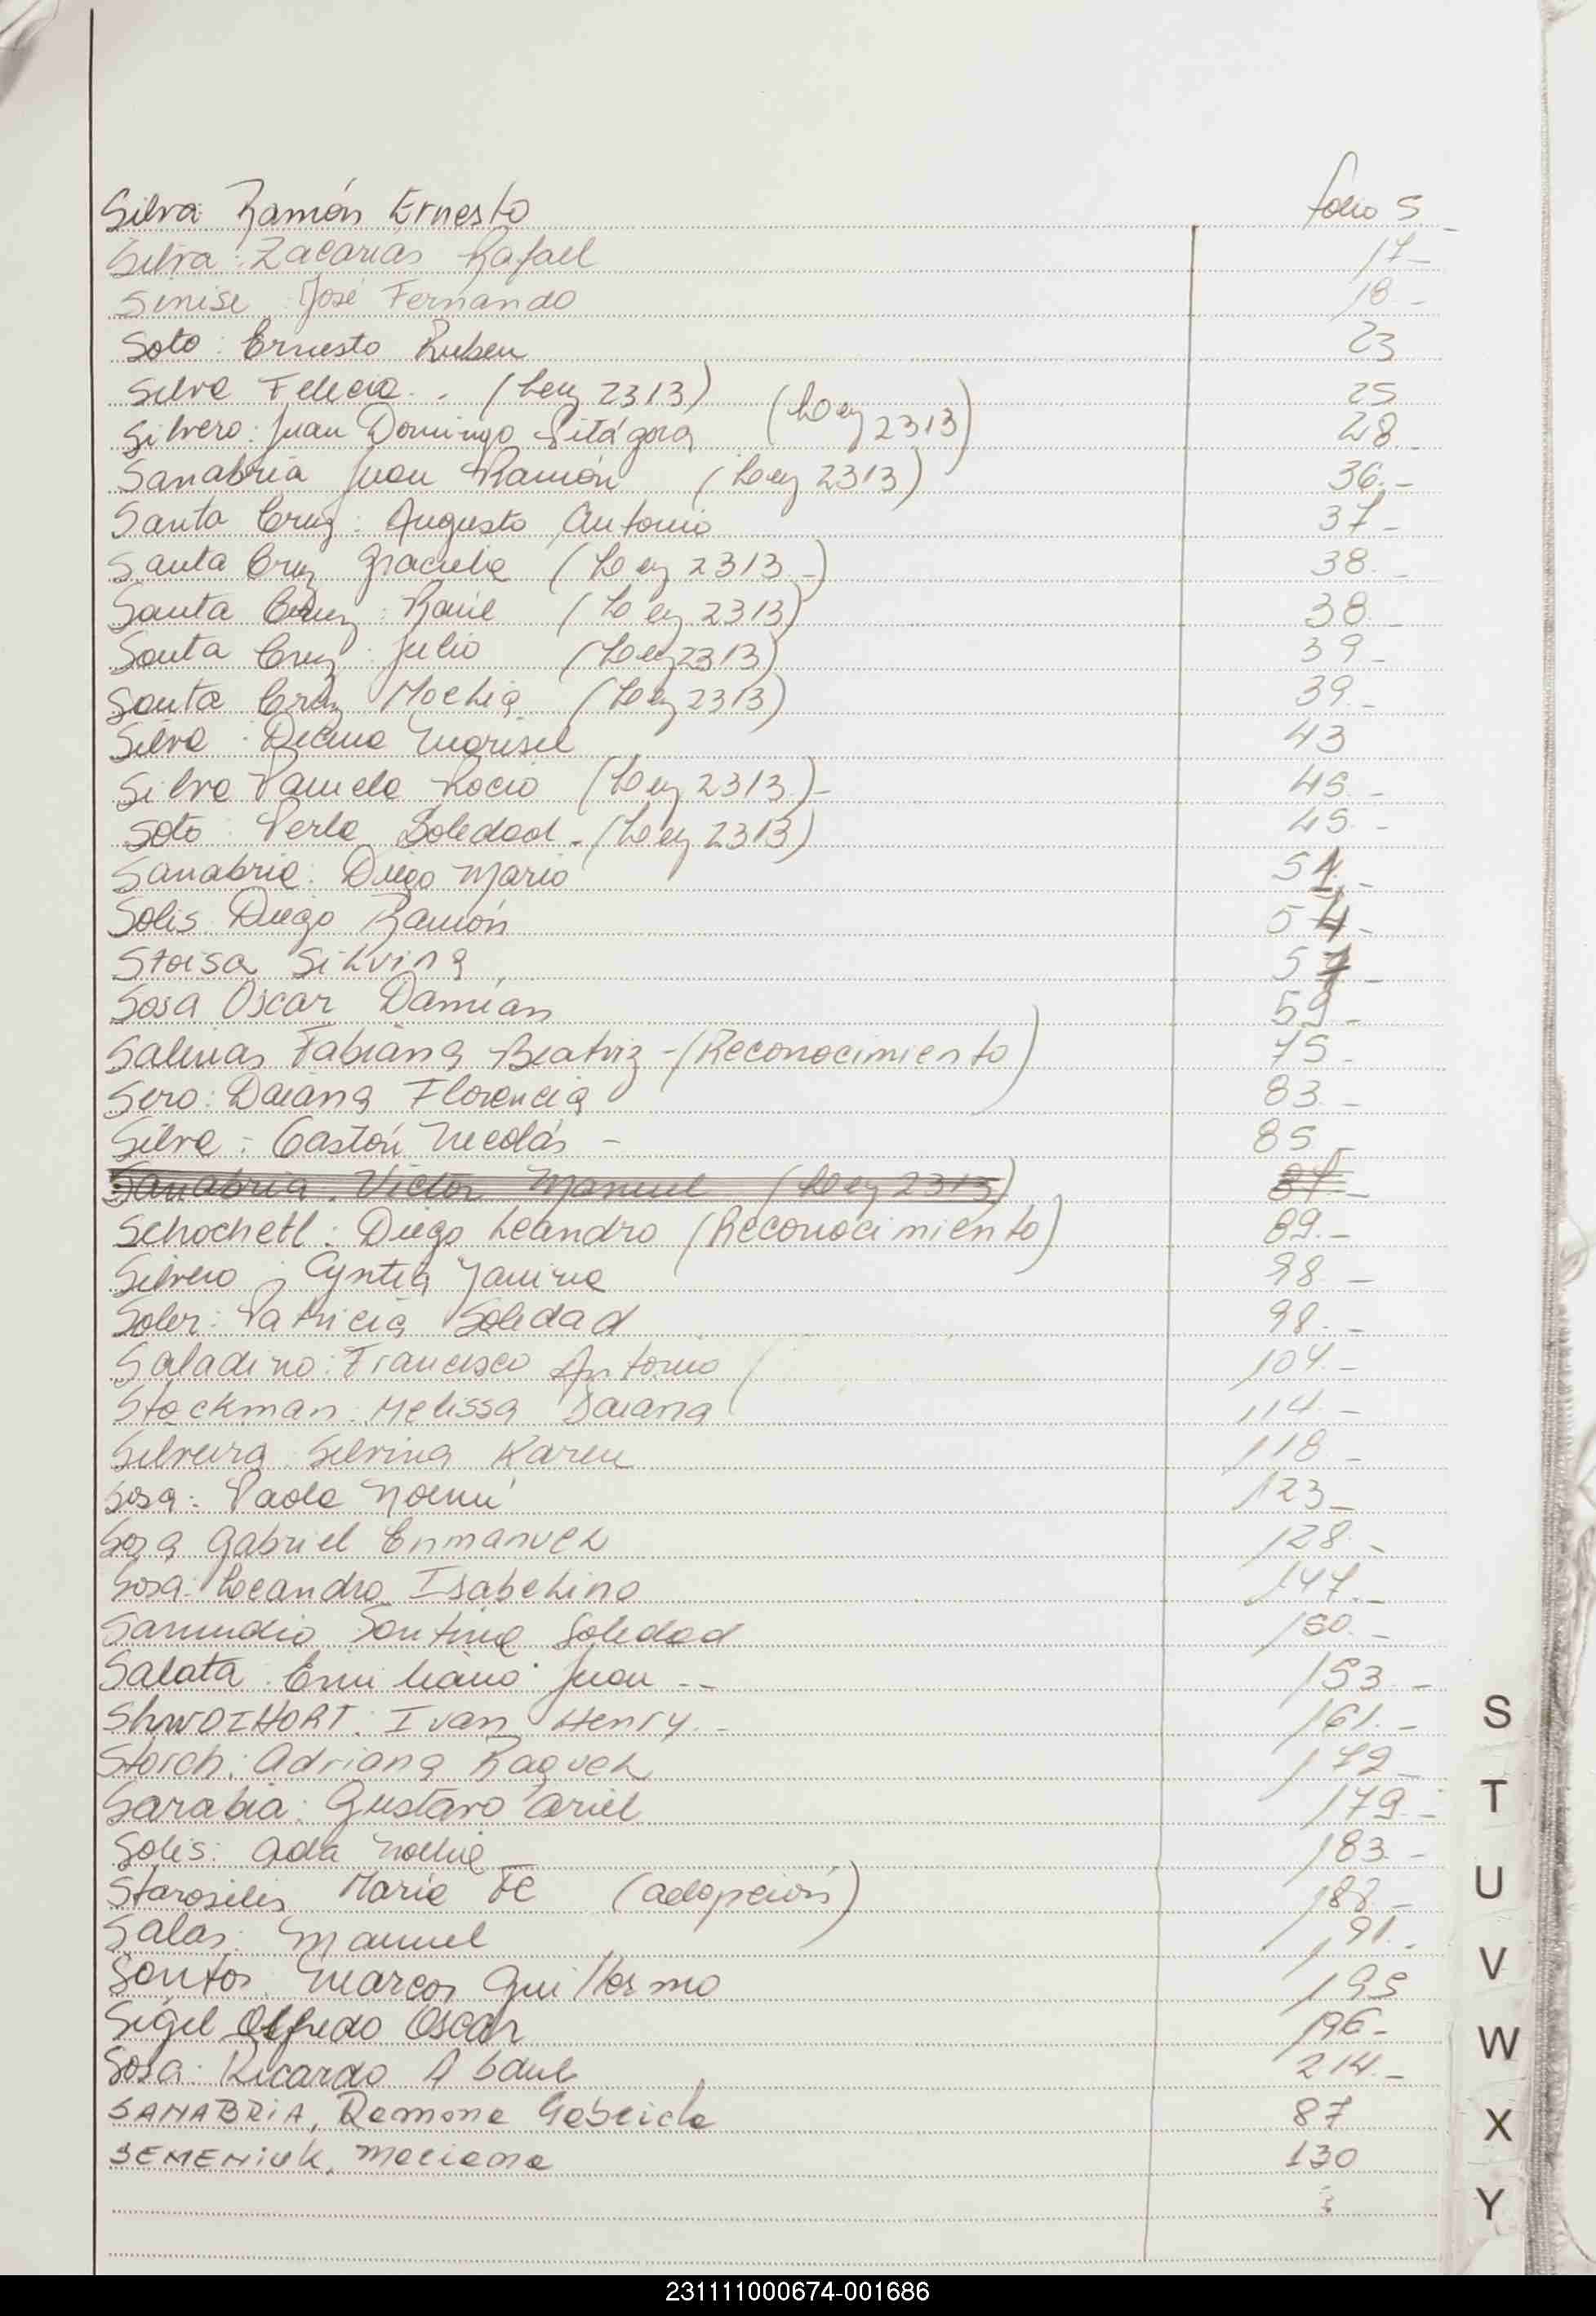 Silva: Ramón Ernesto folio 5
Silva: Zacarías Rafael 17-
Sinise José Fernando 18-
Soto: Ernesto Ruben 23
Silva Felicia. (Ley 2313) 25
Silvero: Juan Domingo Pitágora (Ley 2313) 28
Sanabria Juan Ramón (Ley 2313) 36.-
Santa Cruz: Augusto Antonio 37-
Santa Cruz Graciela (Ley 2313-) 38.-
Santa Cruz: Raúl (Ley 2313) 38-
Santa Cruz: Julio (Ley 2313) 39-
Santa Cruz (Ley 2313) 39.-
Silva: Marisel 43
Silva Pamela Rocio (Ley 2313)- 45.-
Soto: Perla Soledad-(Ley 2313) 45.-
Sanabria: Diego Mario 51.-
Solis Diego Ramón 54-
Stoisa Silvina 57-
Sosa Oscar Damián 59-
Salinas Fabiana Beatriz-(Reconocimiento) 75-
Sero: Daiana Florencia 83-
Silva: Gastón Nicolás- 85-
Sanabria. Victor Manuel (Ley 2313) 87-
Schochetl: Diego Leandro (Reconocimiento) 89.-
Silvero: Cyntia Yanina 98-
Soler: Patricia Soledad 98.-
Saladino: Francisco Antonio 104.-
Stockman: Melissa Daiana 114.-
Silveira Silvina Karen 118-
Sosa: Paola Noemí 123-
Sosa Gabriel Enmanuel 128.-
Sosa: Leandro Isabelino 147.-
Samudio Soledad 150.-
Salata: Emiliano Juan -- 153-
ShwDIHORT: Ivan Henry- 161.-
Storch: Adriana Raquel 172-
Sarabia: Gustavo Ariel 179-
Solis: Ada Noelia 183-
Starosilis Maria Fe (adopción) 188-
Salas: Manuel 191.-
Santos: Marcos Guillermo 195
Sigel Alfredo Oscar 196-
Sosa: Ricardo Abdul 214.-
SANABRIA, Ramona Gabriela 87
SEMENIUK, Mariana 130
S
T
U
V
W
X
Y
231111000674-001686